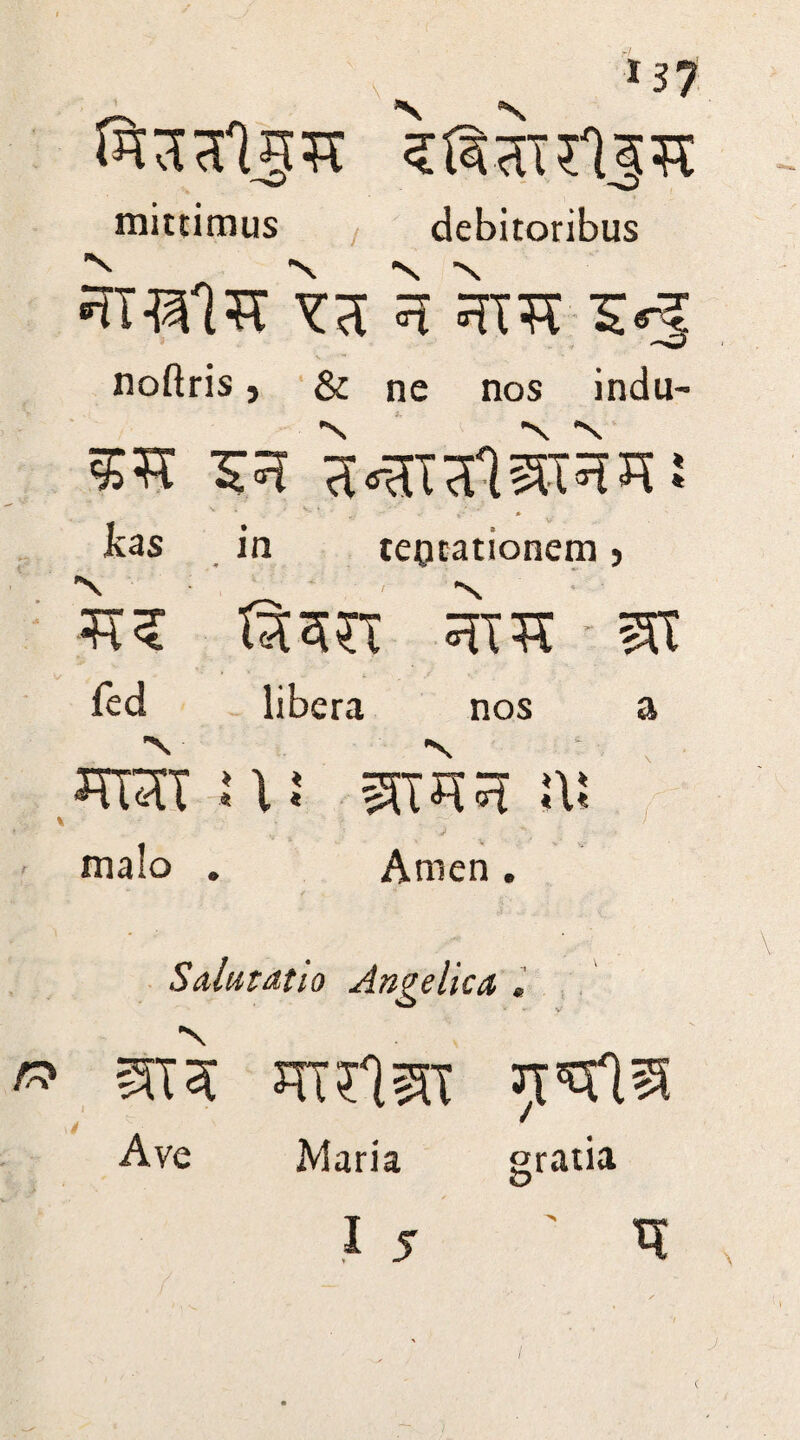 137
मित्तिमुस देबितोरिबुस
mittimus debitoribus
नोस्त्रिस एत ने नोस इन्दु
noſtris, & ne nos indu-
कस इन तेन्तातिओनेम :
kas in tentationem,
सेद लिबेरा नोस आ
ſed libera nos a
मालो :।: आमेन :।:
malo . Amen .
Salutatio Angelica .
आवे मारिआ ग्रात्सिअ
Ave Maria gratia
I 5 प